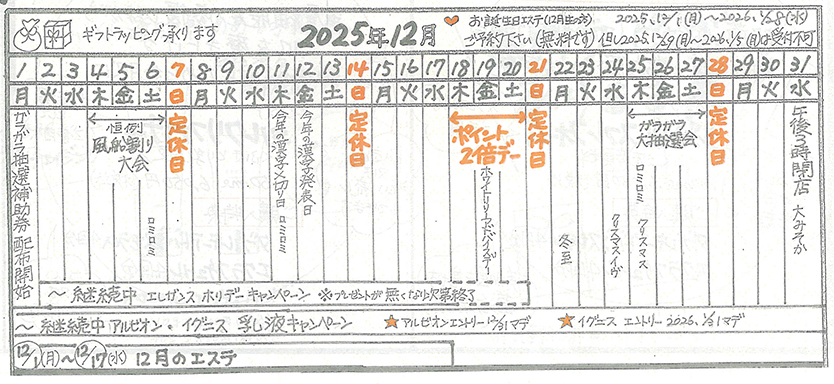 ギフトラッピング承ります
2025年12月
お誕生日エステ(12月生の方) 2025,12/1(月)~2026,1/28(水)
ご予約下さい(無料です) 但し2025,12/29(月)~2026,1/5(月)は受付不可
1 2 3 4 5 6 7 8 9 10 11 12 13 14 15 16 17 18 19 20 21 22 23 24 25 26 27 28 29 30 31
月 火 水 木 金 土 日 月 火 水 木 金 土 日 月 火 水 木 金 土 日 月 火 水 木 金 土 日 月 火 水
ガラガラ抽選補助券 配布開始
恒例
風船割り
大会
ロミロミ
定休日
今年の漢字〆切日 ロミロミ
今年の漢字発表日
定休日
ポイント
2倍デー
ホワイトリーフアドバイスデー
定休日
冬至
クリスマスイヴ
ガラガラ
大抽選会
ロミロミ
クリスマス
定休日
午後3時閉店 大みそか
~継続中 エレガンス ホリデーキャンペーン ※プレゼントが無くなり次第終了
~継続中 アルビオン・イグニス 乳液キャンペーン ★アルビオンエントリー12/31マデ ★イグニス エントリー2026,1/31マデ
12/1(月)~12/17(水) 12月のエステ